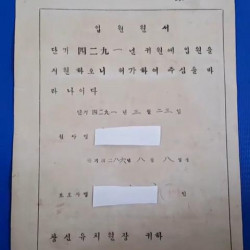 입원원서
단기 四二九一 년 귀원에 입원을
지원하오니 허가하여 주심을 바
라나이다
단기 四二九一 년 三 월 二三 일
원서인
八 월 八 일생
보호자명 인
광선유치원장 귀하